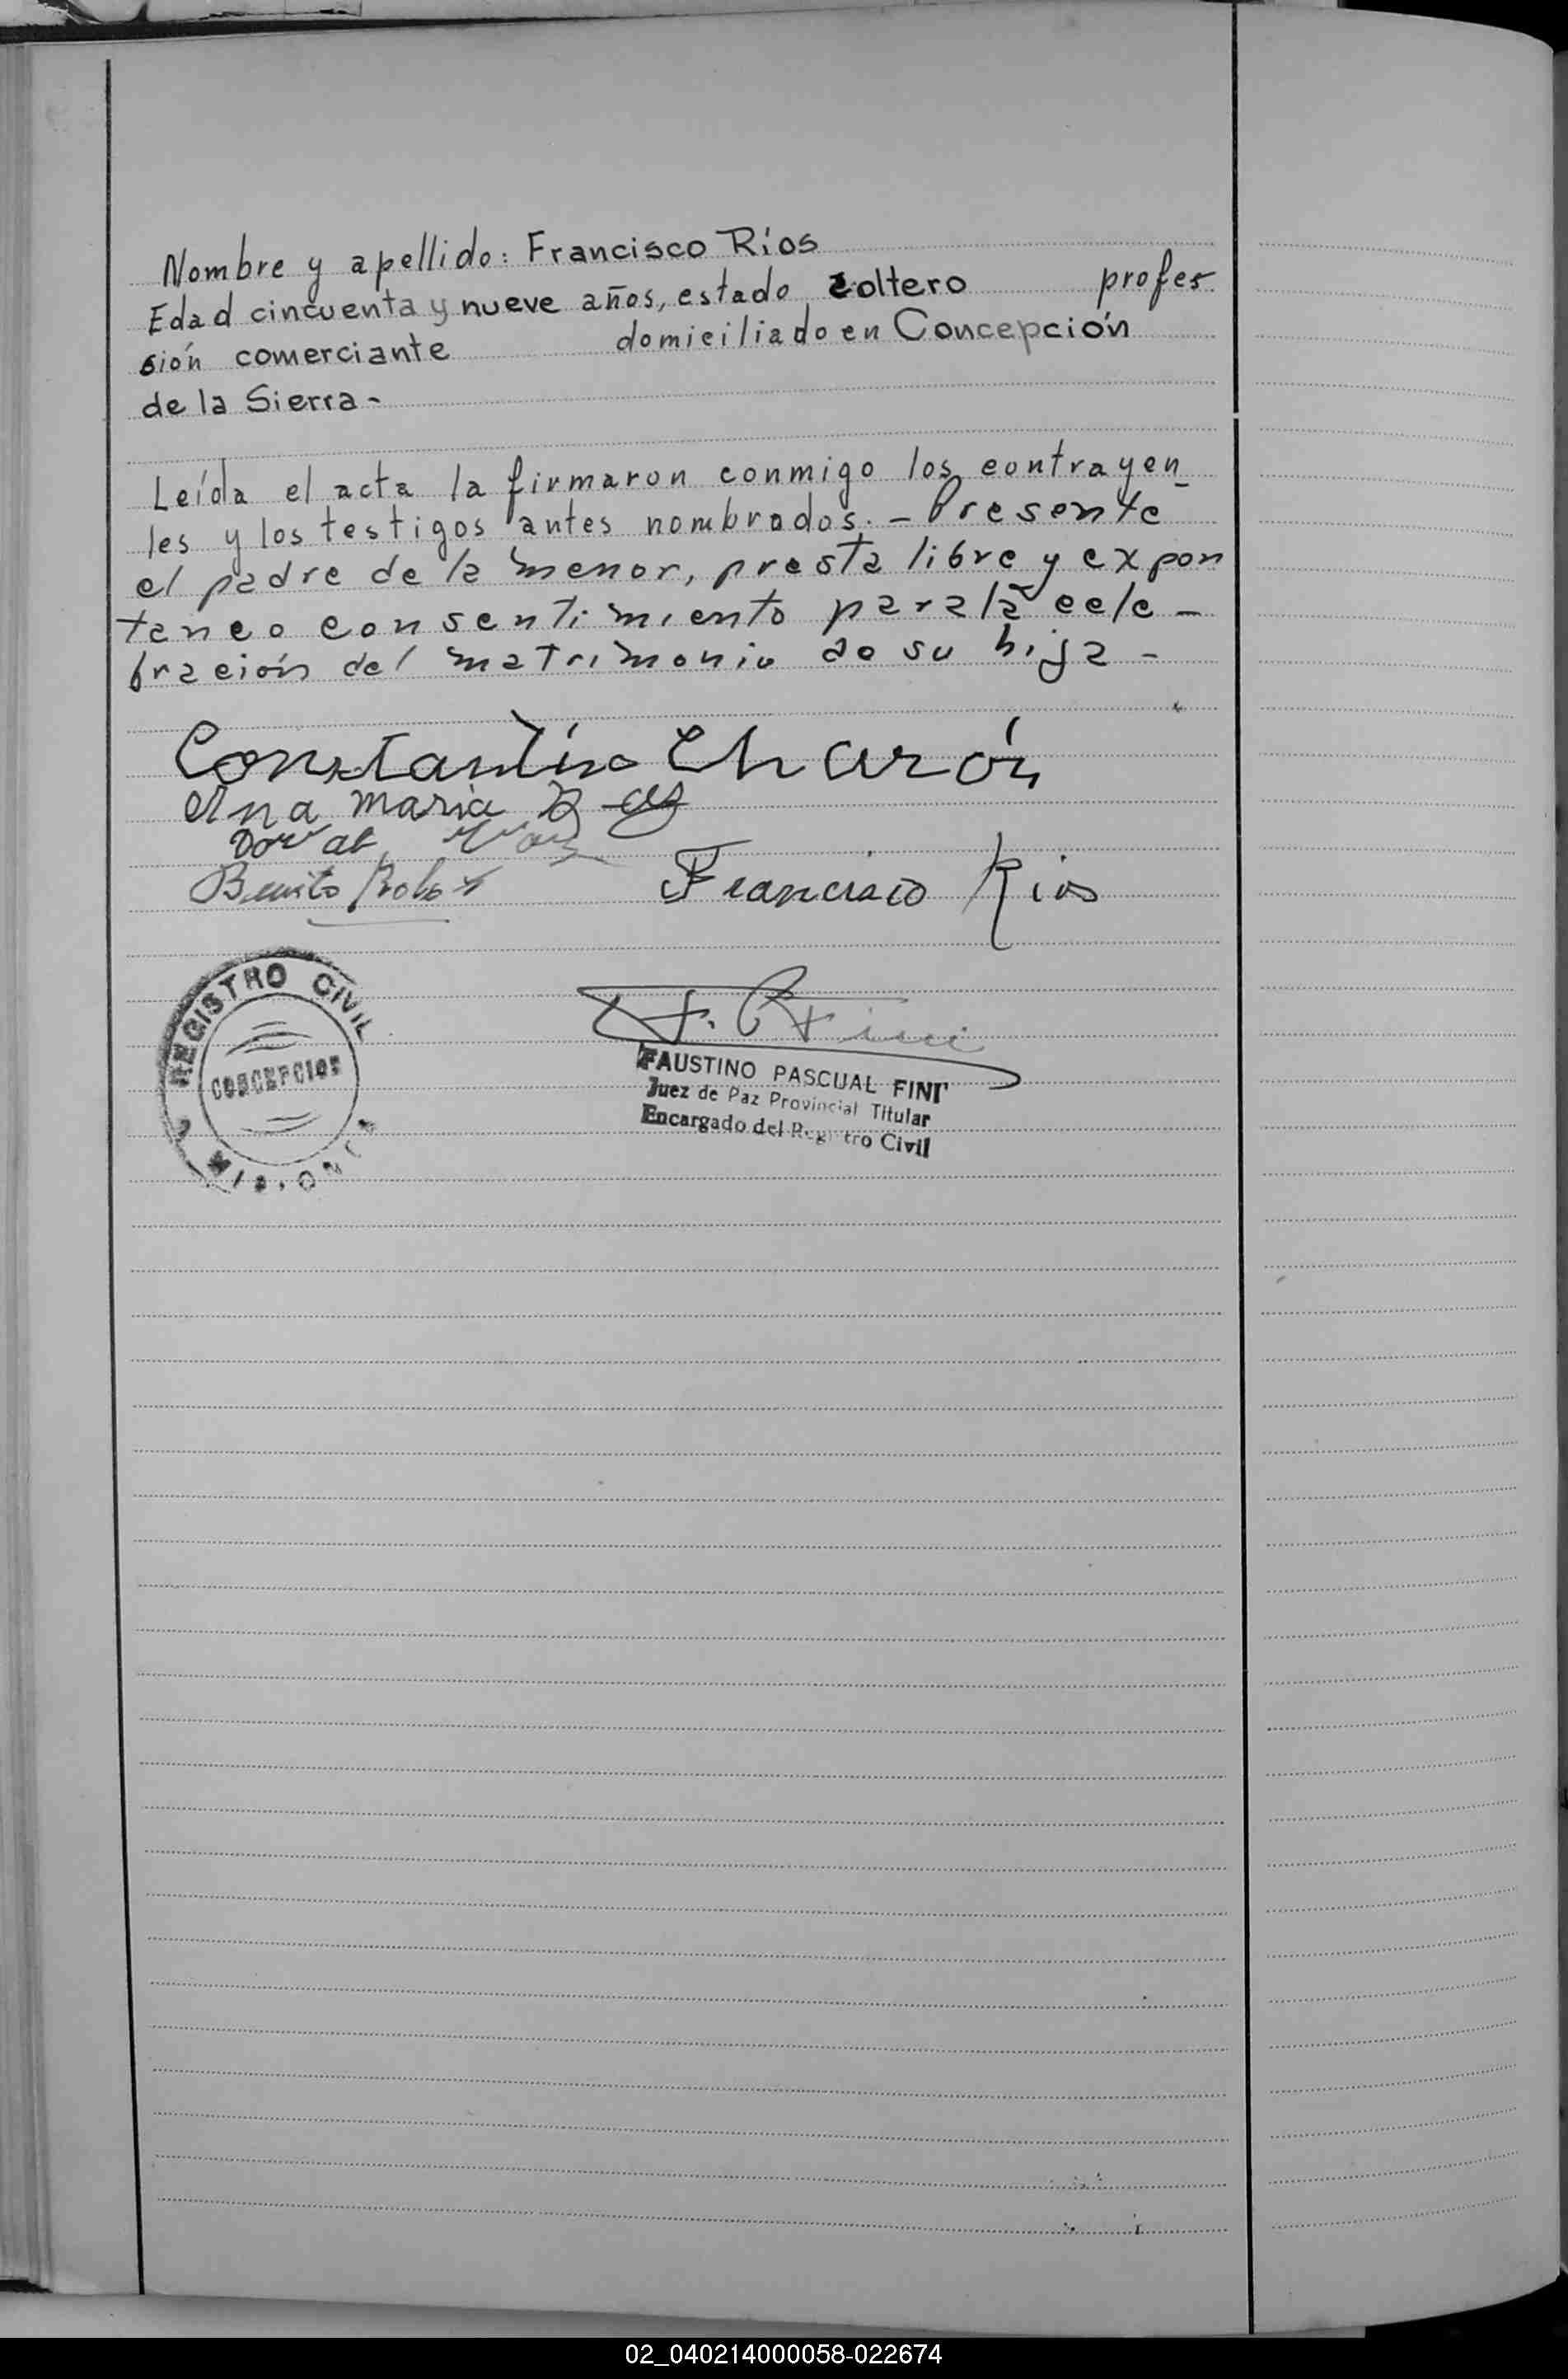 Nombre y apellido: Francisco Ríos
Edad cincuenta y nueve años, estado soltero profe
sión comerciante domiciliado en Concepción
de la Sierra-
Leída el acta la firmaron conmigo los contrayen_
les y los testigos antes nombrados.- Presente
el padre de la menor, presta libre y expon
taneo consentimiento para la cele-
bración del matrimonio de su hija-
Constantino Charón
Ana maria
Benito
Francisco Rios
REGISTRO CIVIL
CONCEPCION
MISIONES
FAUSTINO PASCUAL FINI
Juez de Paz Provincial Titular
Encargado del Registro Civil
02_040214000058-022674